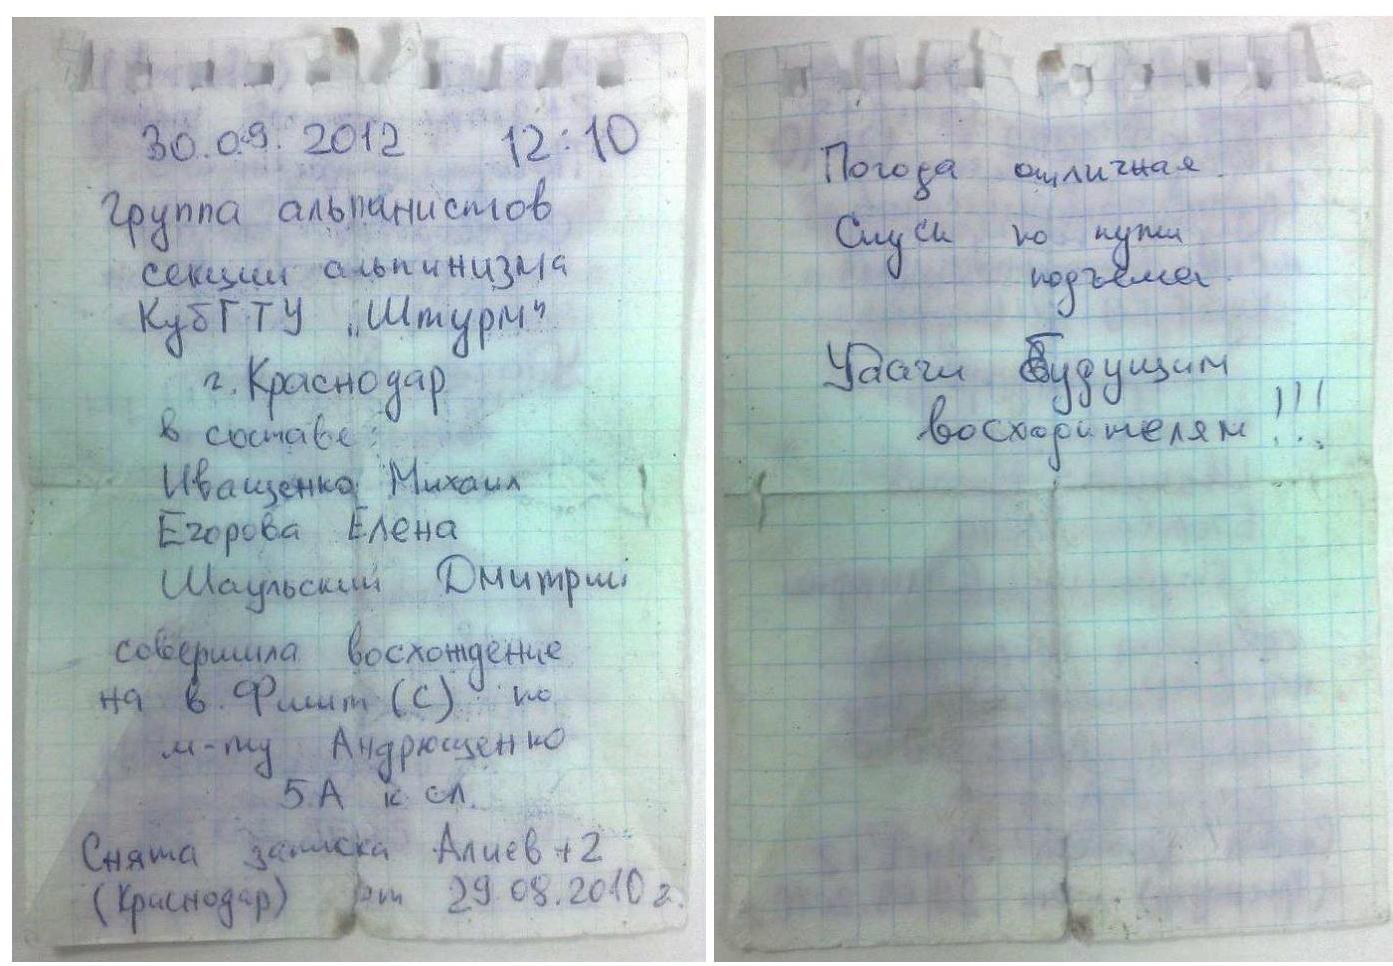 30.09.2012 12:10
Группа альпанистов
секции альпинизма
КубГТУ „Штурм"
г. Краснодар
в составе:
Иващенко Михаил
Егорова Елена
Шаульский Дмитрий
совершила восхождение
на в. Фишт (С) по
м-ту Андрющенко
5А к сл.
Снята записка Алиев + 2
(Краснодар) от 29.08.2010 г.
Погода отличная
Спуск по пути
подъема
Удачи будущим
восходителям!!!